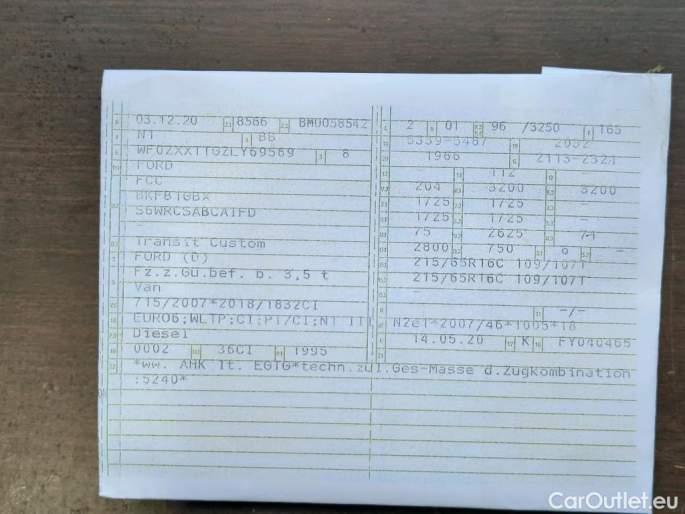 03.12.20 8566 BM0058542 2 01 96 /3250 165
N1 BB 5339-5487 2032
WF0ZXXTTGZLY69569 8 1986 2113-2324
FORD - 112 -
FCC 204 3200 3200
BKFB1GBX 1725 1725 -
S6WRCSABCAIFD 1725 1725 -
- 75 2625 74
Transit Custom 2800 750 9 -
FORD (D) 215/65R16C 109/107T
Fz.z.Gü.bef. b. 3,5 t 215/65R16C 109/107T
Van -
715/2007*2018/1832CI - -/-
EURO6;WLTP;CI;PI/CI;N1 II N2e1*2007/46*1005*18
Diesel 14.05.20 K FY040465
0002 36CI 1995
*ww. AHK lt. EGTG*techn.zul.Ges-Masse d.Zugkombination
:5240*
CarOutlet.eu